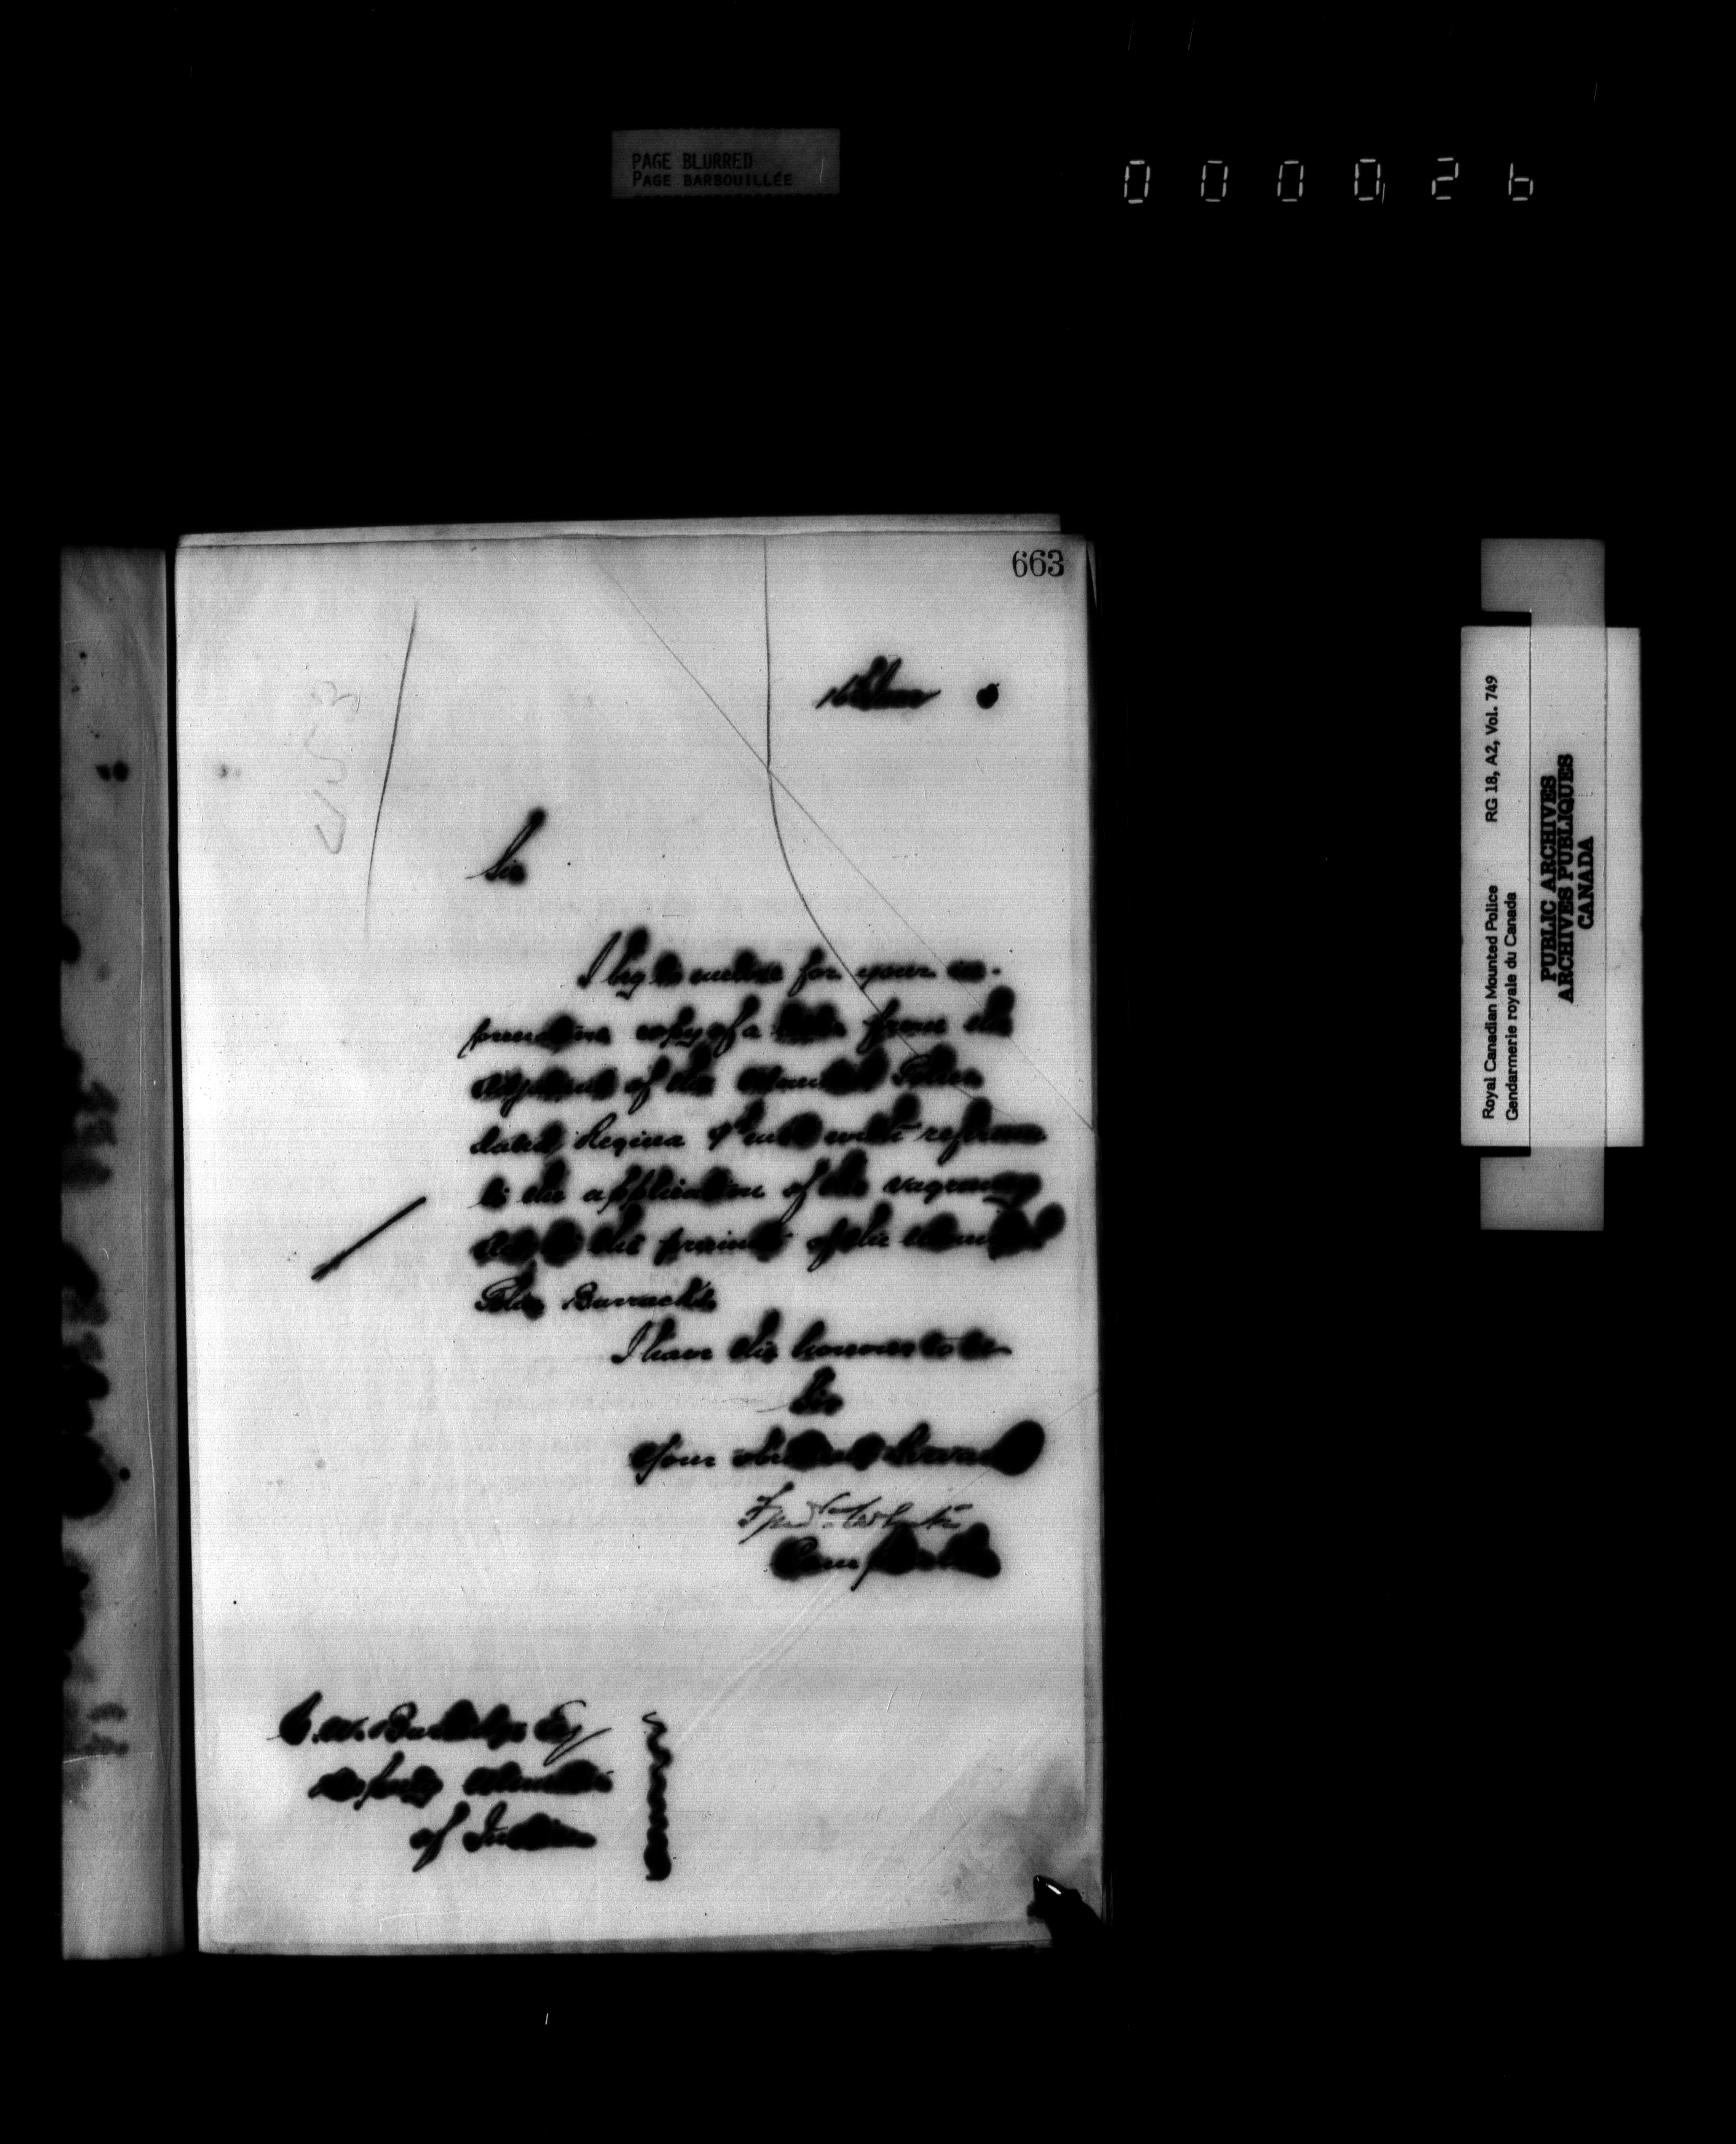 PAGE BLURRED
PAGE BARBOUILLÉE
000026
663
Sir
I beg to enclose for your in-
formation copy of a letter from the
Adjutant of the Mounted Police
dated Regina with reference
to the application of the vagrancy
Act to the precincts of the Mounted
Police Barracks
I have the honour to be
Sir
Your obedient Servant
Fred White
Comptroller
G. W. Burbidge Esq
Deputy Minister
of Justice
Royal Canadian Mounted Police RG 18, A2, Vol. 749
Gendarmerie royale du Canada
PUBLIC ARCHIVES
ARCHIVES PUBLIQUES
CANADA